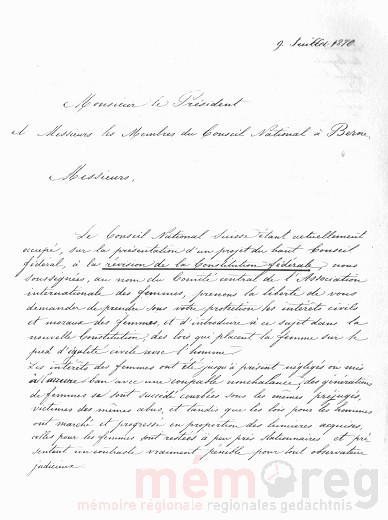 9 Juillet 1870
Monsieur le Président
et Messieurs les Membres du Conseil National à Berne,
Messieurs,
Le Conseil National Suisse étant actuellement
occupé, sur la présentation d'un projet du haut Conseil
fédéral, à la révision de la Constitution fédérale, nous
soussignées, au nom du Comité central de l'Association
internationale des femmes, prenons la liberté de vous
demander de prendre sous votre protection les intérêts civils
et moraux des femmes, et d'introduire à ce sujet dans la
nouvelle Constitution, des lois qui placent la femme sur le
pied d'égalité civile avec l'homme.
Les intérêts des femmes ont été jusqu'à présent négligés ou mis
à l'arrière ban avec une coupable nonchalance, des générations
de femmes se sont succédé courbées sous les mêmes préjugés,
victimes des mêmes abus, et tandis que les lois pour les hommes
ont marché et progressé en proportion des lumières acquises,
celles pour les femmes sont restées à peu près stationnaires et pré
sentent un contraste vraiment pénible pour tout observateur
judicieux
mémoreg
mémoire régionale regionales gedächtnis